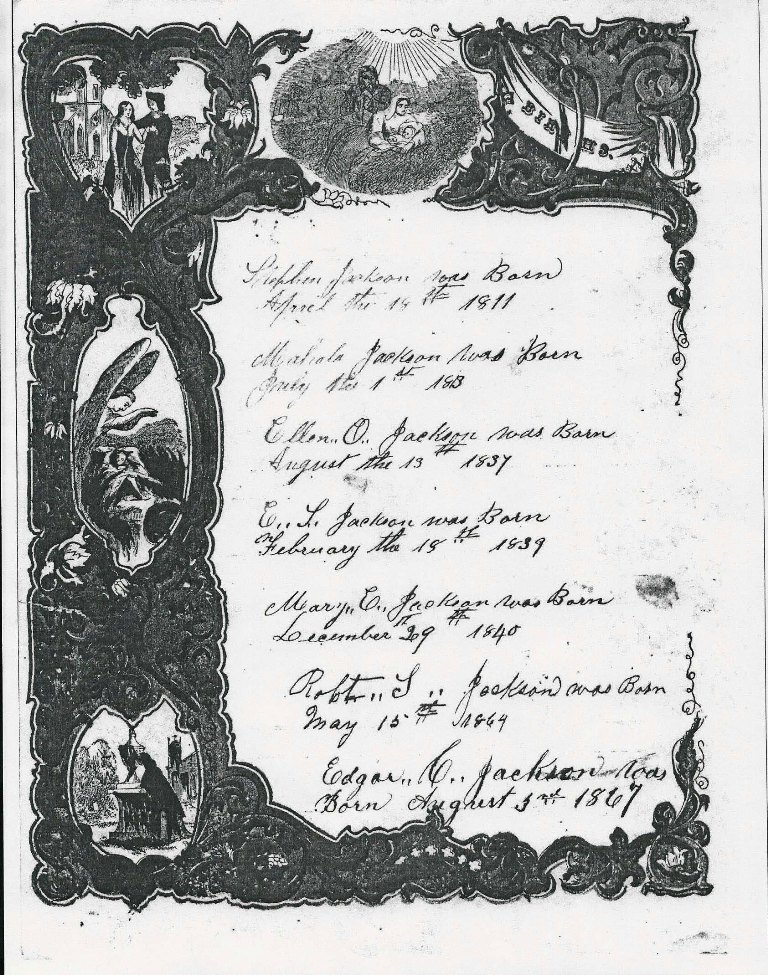 BIRTHS.
Stephen Jackson was Born
April the 18th 1811
Mahala Jackson was Born
July the 1st 1813
Ellen,, O,, Jackson was Born
August the 13th 1837
E,, S,, Jackson was Born
February the 18th 1839
Mary,, E,, Jackson was Born
December 29th 1840
Robt,, S,, Jackson was Born
May 15th 1864
Edgar,, C,, Jackson was
Born August 3rd 1867